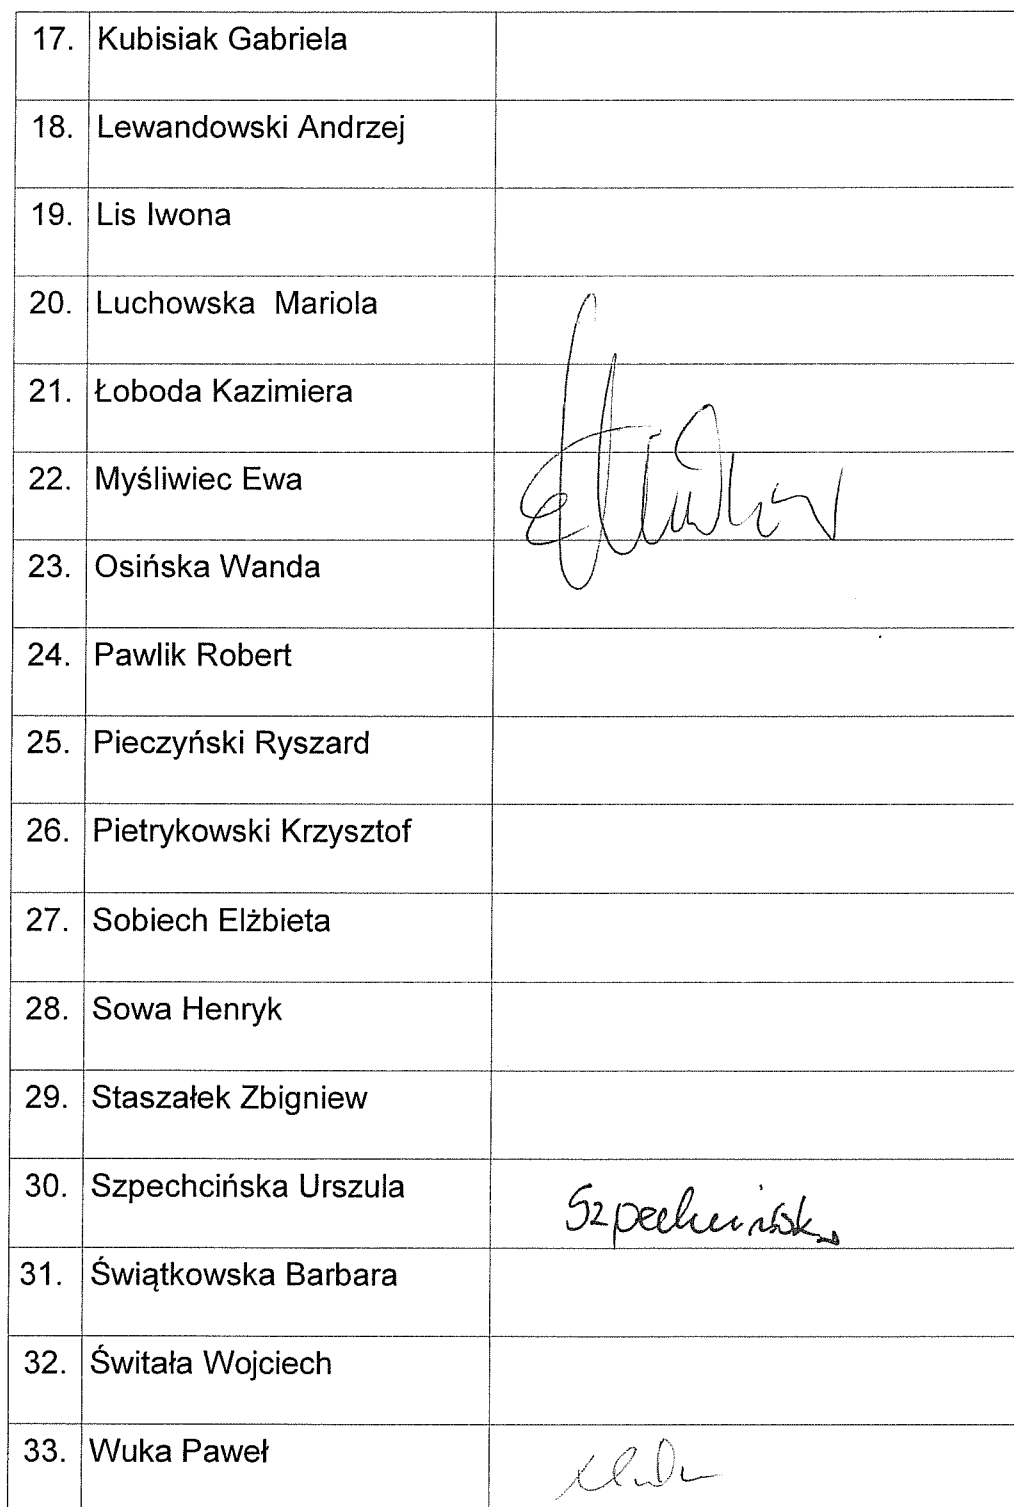 17. Kubisiak Gabriela
18. Lewandowski Andrzej
19. Lis Iwona
20. Luchowska Mariola
21. Łoboda Kazimiera
22. Myśliwiec Ewa
23. Osińska Wanda
24. Pawlik Robert
25. Pieczyński Ryszard
26. Pietrykowski Krzysztof
27. Sobiech Elżbieta
28. Sowa Henryk
29. Staszałek Zbigniew
30. Szpechcińska Urszula Szpechcińska
31. Świątkowska Barbara
32. Świtała Wojciech
33. Wuka Paweł